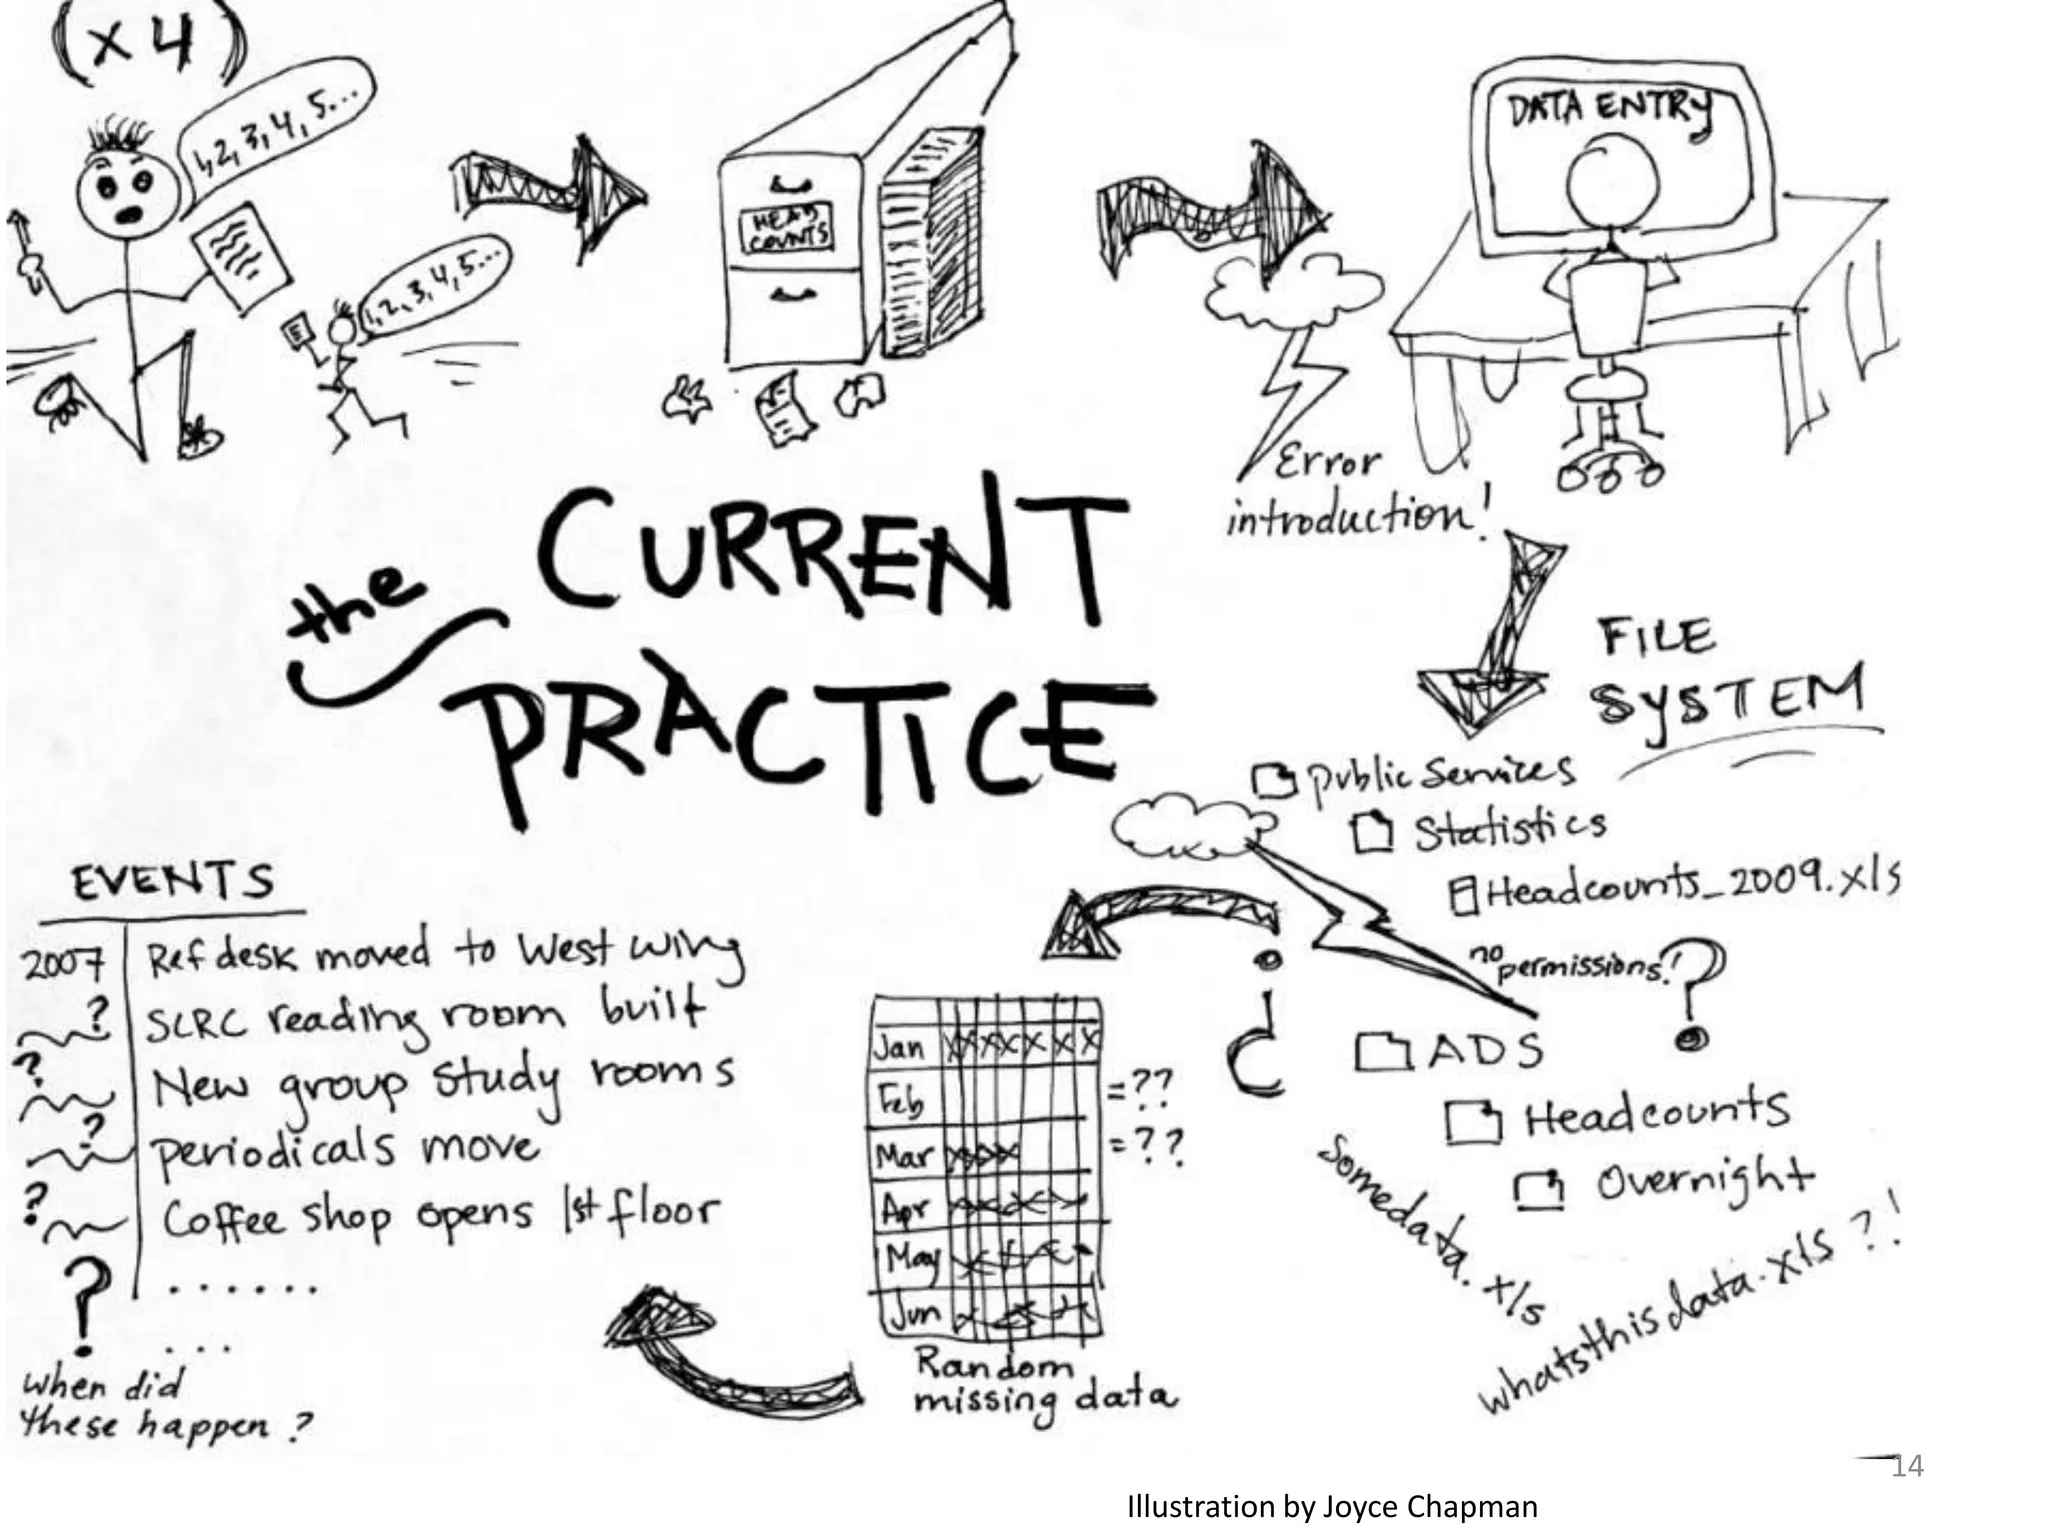 (x 4)
1, 2, 3, 4, 5...
1, 2, 3, 4, 5...
HEAD
COUNTS
DATA ENTRY
Error
introduction!
the
CURRENT
PRACTICE
FILE
SYSTEM
Public Services
Statistics
Headcounts_2009.xls
no permissions!
?
ADS
Headcounts
Overnight
Somedata.xls
whatsthisdata.xls ?!
?
Jan
Feb
=??
Mar
=??
Apr
May
Jun
Random
missing data
EVENTS
2007 Ref desk moved to West wing
? SCRC reading room built
? New group study rooms
? periodicals move
? Coffee shop opens 1st floor
? ......
...
When did
these happen?
14
Illustration by Joyce Chapman